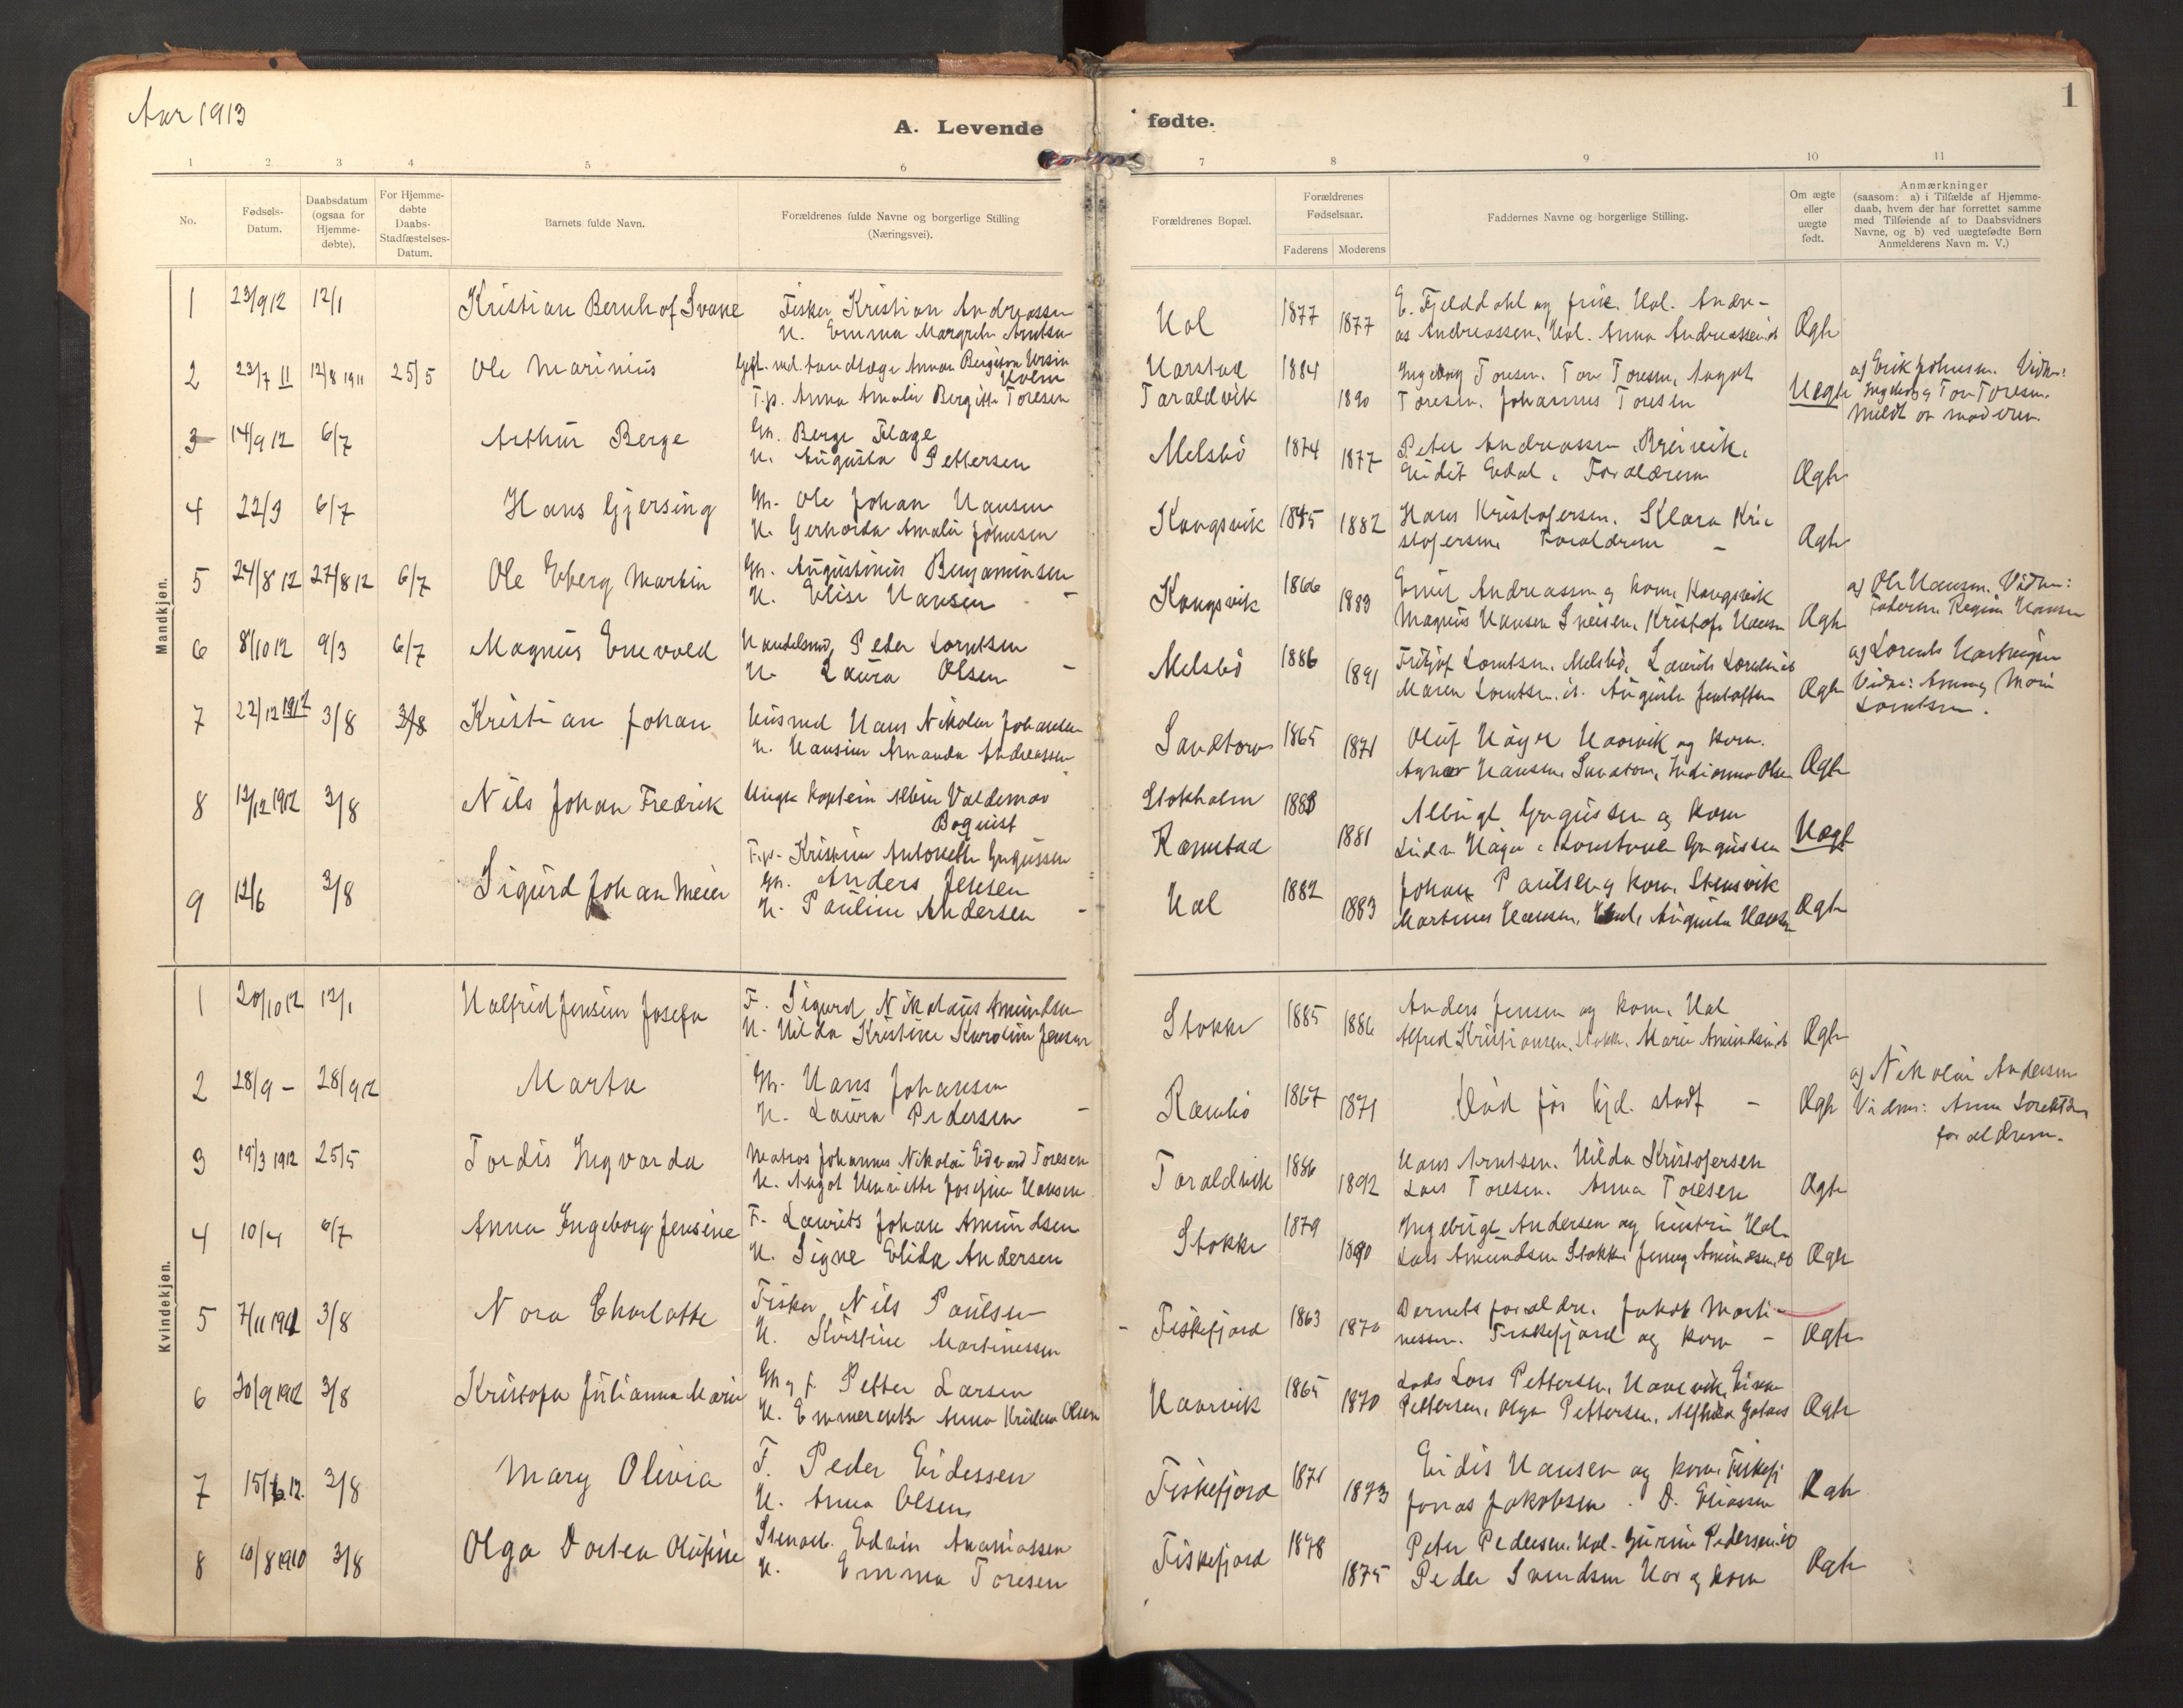 Aar 1913
A. Levende fødte.
1
1 2 3 4 5 6 7 8 9 10 11
No.
Fødsels-
Datum.
Daabsdatum
(ogsaa for
Hjemme-
døbte).
For Hjemme-
døbte
Daabs-
Stadfæstelses-
Datum.
Barnets fulde Navn.
Forældrenes fulde Navne og borgerlige Stilling
(Næringsvei).
Forældrenes Bopæl.
Forældrenes
Fødselsaar.
Faderens Moderens
Faddernes Navne og borgerlige Stilling.
Om ægte
eller
uægte
født.
Anmærkninger
(saasom: a) i Tilfælde af Hjemme-
daab, hvem der har forrettet samme
med Tilføiende af to Daabsvidners
Navne, og b) ved uægtefødte Børn
Anmelderens Navn m. V.)
Mandkjøn.
1 23/9 12 12/1 Kristian Bernhof Svane Fisker Kristian Andreassen Hol 1877 E. Fjelddahl og frue. Hol. Andr-
H. Emma Margrete Arntsen 1877 as Andreassen, Hol. Anna Andreassen Ægte
2 23/7 11 12/8 1911 25/5 Ole Marinius Harstad 1884 Ingeborg Toresen. Tor Toresen, Aagot a) Erik Johnsen. Vidn:
Holm
T.p. Anna Amalie Bergitte Toresen Taraldvik 1890 Toresen. Johannes Toresen Uegte Ingeborg og Tor Toresen.
Meldt av moderen.
3 14/9 12 6/7 Arthur Berge Gm. Berge Flage Melsbö 1874 Peter Andreassen, Breivik.
H. Augusta Pettersen 1877 Forældrene Ægte
4 22/3 6/7 Hans Gjersing Gm. Ole Johan Hansen Kongsvik 1845 Hans Kristofersen. Klara Kri-
H. Gerharda Amalie Johnsen 1882 stofersen. Forældrene - Ægte
5 24/8 12 27/8 12 6/7 Ole Eberg Martin Gm. Augustinus Benjaminsen Kongsvik 1866 Emil Andreassen og kone Kongsvik a) Ole Hansen. Vidn:
H. Elise Hansen - 1883 Magnus Hansen Kristofa Hansen Ægte Faderen Regine Hansen
6 8/10 12 9/3 6/7 Magnus Enevold Handelsmd, Peder Lorntsen Melsbö 1886 Fritjof Lorntsen. Melsbö, Laurits Lorntsen
H. Laura Olsen - 1891 Maren Lorntsen. Augusta Ægte Lorntsen.
7 22/12 1912 3/8 3/8 Kristian Johan Husmd Hans Nikolai Johansen Sandtorv 1865 Oluf Höyer Haarvik og kone.
H. Hansine Amanda Andreassen 1871 Hansen, Sandtorv, Indianna Olsen Ægte
8 12/12 1912 3/8 Nils Johan Fredrik Ungk kaptein Albin Valdemar Stokholm 1883
Boquist
T.p. Kristine Antonette Gregussen Ramstad 1881 Höyer Gregussen Uægt
9 12/6 3/8 Sigurd Johan Meier Gm. Anders Jensen Hol 1882 Johan Paulsen og kone, Stensvik
H. Pauline Andersen - 1883 Martinus Hansen, Hol, Augusta Hansen Ægte
Kvindekjøn.
1 20/10 12 12/1 Halfrid Jensine Josefa F. Sigurd Nikolaus Amundsen Stokke 1885 Anders Jensen og kone, Hol
H. Hilda Kristine Karoline Jensen 1886 Alfred Kristiansen, Stokke, Marie Amundsen Ægte
2 28/9 - 28/9 12 Marta Gm. Hans Johansen Rambö 1867 Död før hjd. stadf - Ægte a) Nikolai Andersen
H. Laura Pedersen - 1871 Vidner: Anna
forældrene.
3 19/3 1912 25/5 Tordis Ingvarda Matros Johannes Nikolai Edvard Toresen Taraldvik 1886 Hans Arntsen. Hilda Kristofersen
H. Aagot Henriette Josefine Hansen 1892 Lars Toresen. Anna Toresen Ægte
4 10/4 6/7 Anna Ingeborg Jensine F. Laurits Johan Amundsen Stokke 1879 Ingebrigt Andersen og hustru Hol
H. Signe Elida Andersen 1890 Lars Amundsen Stokke Jenny Amundsen Ægte
5 7/11 1911 3/8 Nora Charlotte Fisker Nils Paulsen - Fiskefjord 1863 Barnets foreldre. Jakob Marti-
H. Kristine Martinessen 1870 nessen. Fiskefjord og kone - Ægte
6 30/9 1912 3/8 Kristofa Julianna Marie Gm. og f. Petter Larsen Haarvik 1865 Lars Pettersen, Haarvik,
H. Emmerentse Anna Kristina Olsen 1870 Pettersen, Olga Pettersen, Ægte
7 15/6 12. 3/8 Mary Olivia F. Peder Eidessen Fiskefjord 1871 Eidis Hansen og kone, Fiskefj
H. Anna Olsen 1873 Jonas Jakobsen. D. Eliassen Ægte
8 10/8 1910 3/8 Olga Dortea Olufine Edvin Ananiassen Fiskefjord 1878 Peter Pedersen. Hol.
H. Emma Toresen 1875 Peder Svendsen Hol og kone Ægte